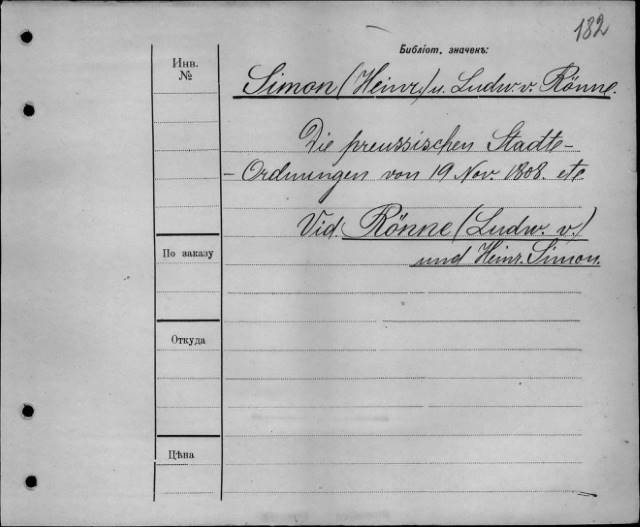 182
Библіот. значекъ:
Инв.
№
Simon (Heinr.) u. Ludw. v. Rönne.
Die preussischen Stadte-
-Ordnungen von 19 Nov. 1808. etc
Vid. Rönne (Ludw. v.)
und Heinr. Simon.
По заказу
Откуда
Цѣна